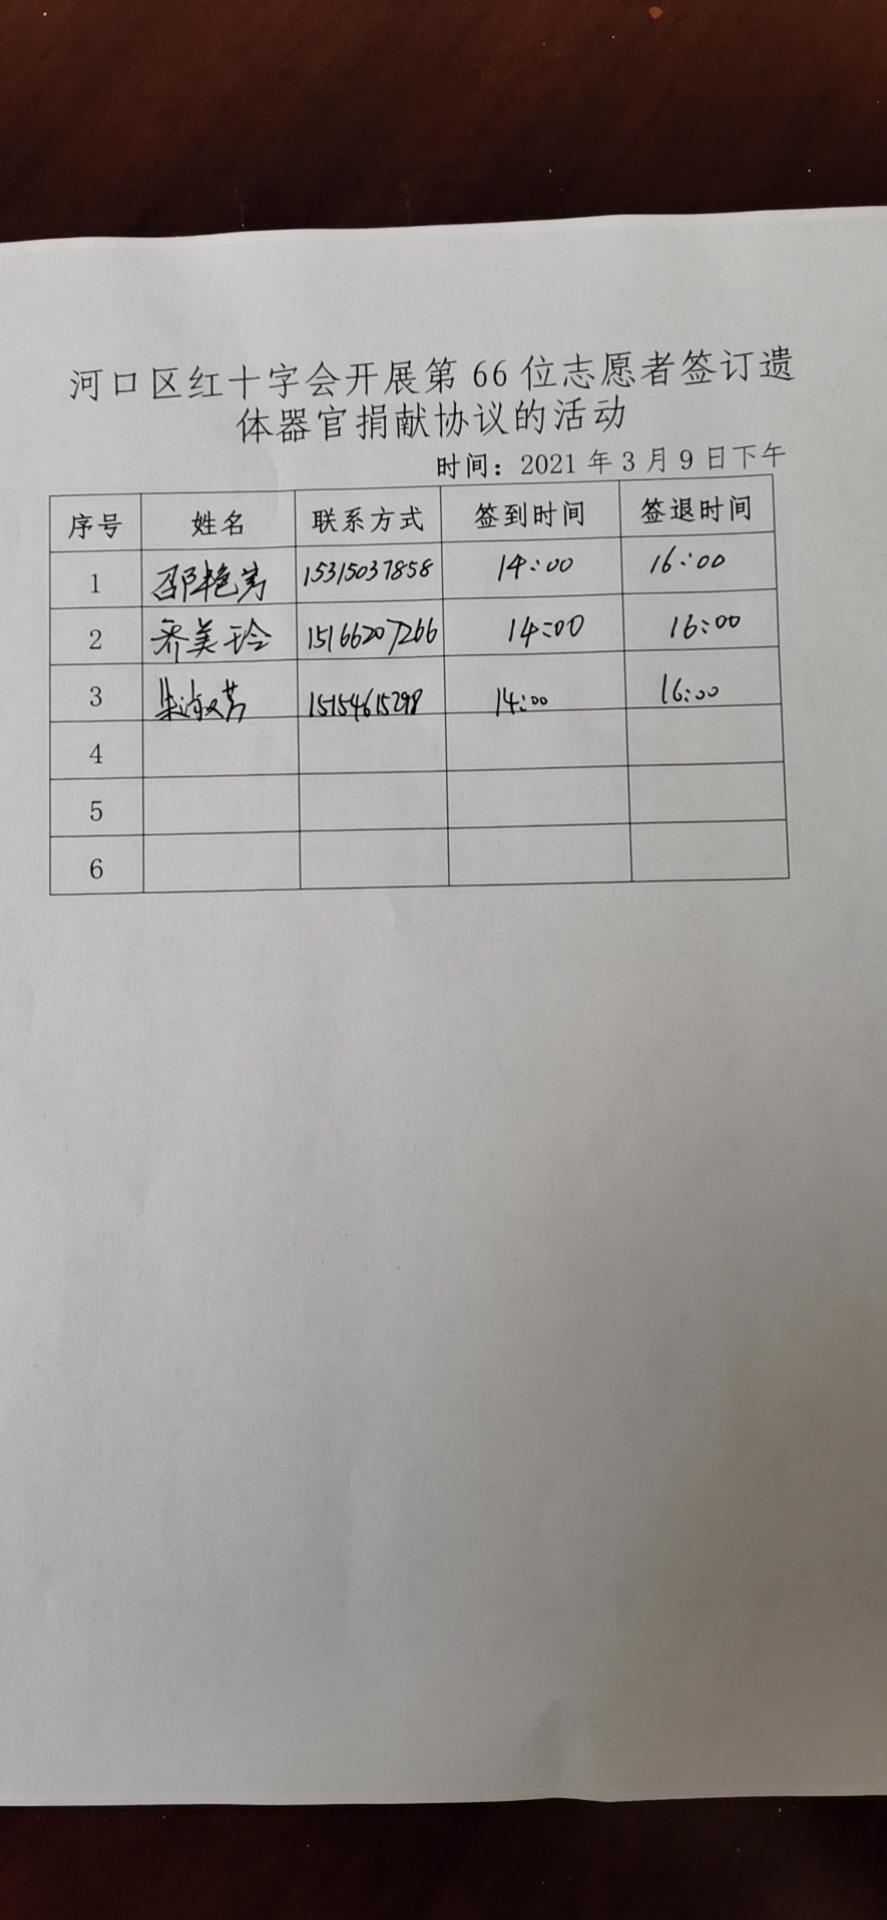 河口区红十字会开展第66位志愿者签订遗
体器官捐献协议的活动
时间：2021年3月9日下午
序号 姓名 联系方式 签到时间 签退时间
1 邵艳 15315037858 14:00 16:00
2 乔美玲 15166207266 14:00 16:00
3 朱淑芳 15154615298 14:00 16:00
4
5
6